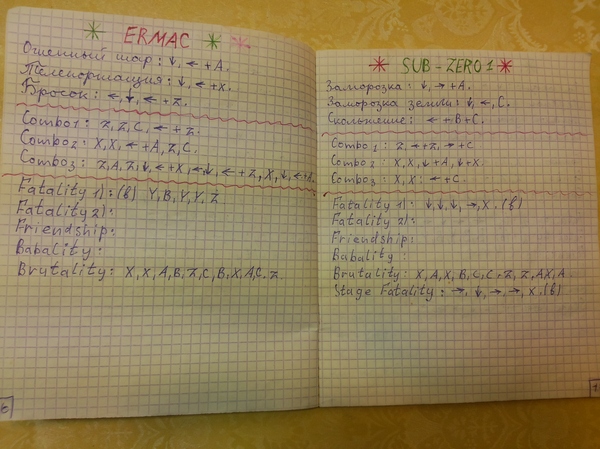 ERMAC
Огненный шар: ↓, ← + A.
Телепортация: ↓, ← + X.
Бросок: ←, ↓, ← + Z.
Combo1: Z, Z, C, ← + Z.
Combo2: X, X, ← + A, Z, C.
Combo3: Z, A, Z, ↓, ← + X, ←, ↓, ← + Z, X, ↓, ← + A.
Fatality 1): (в) Y, B, Y, Y, Z
Fatality 2):
Friendship:
Babality:
Brutality: X, X, A, B, Z, C, B, X, A, C, Z.
6
SUB-ZERO 1
Заморозка: ↓, → + A.
Заморозка земли: ↓, ←, C.
Скольжение: ← + B + C.
Combo1: Z, ← + Z, → + C
Combo2: X, X, ↓ + A, ↓ + X.
Combo3: X, X, ← + C.
Fatality 1): ↓, ↓, ↓, →, X. (в)
Fatality 2):
Friendship:
Babality:
Brutality: X, A, X, B, C, C, Z, Z, A, X, A
Stage Fatality: →, ↓, →, →, X. (в)